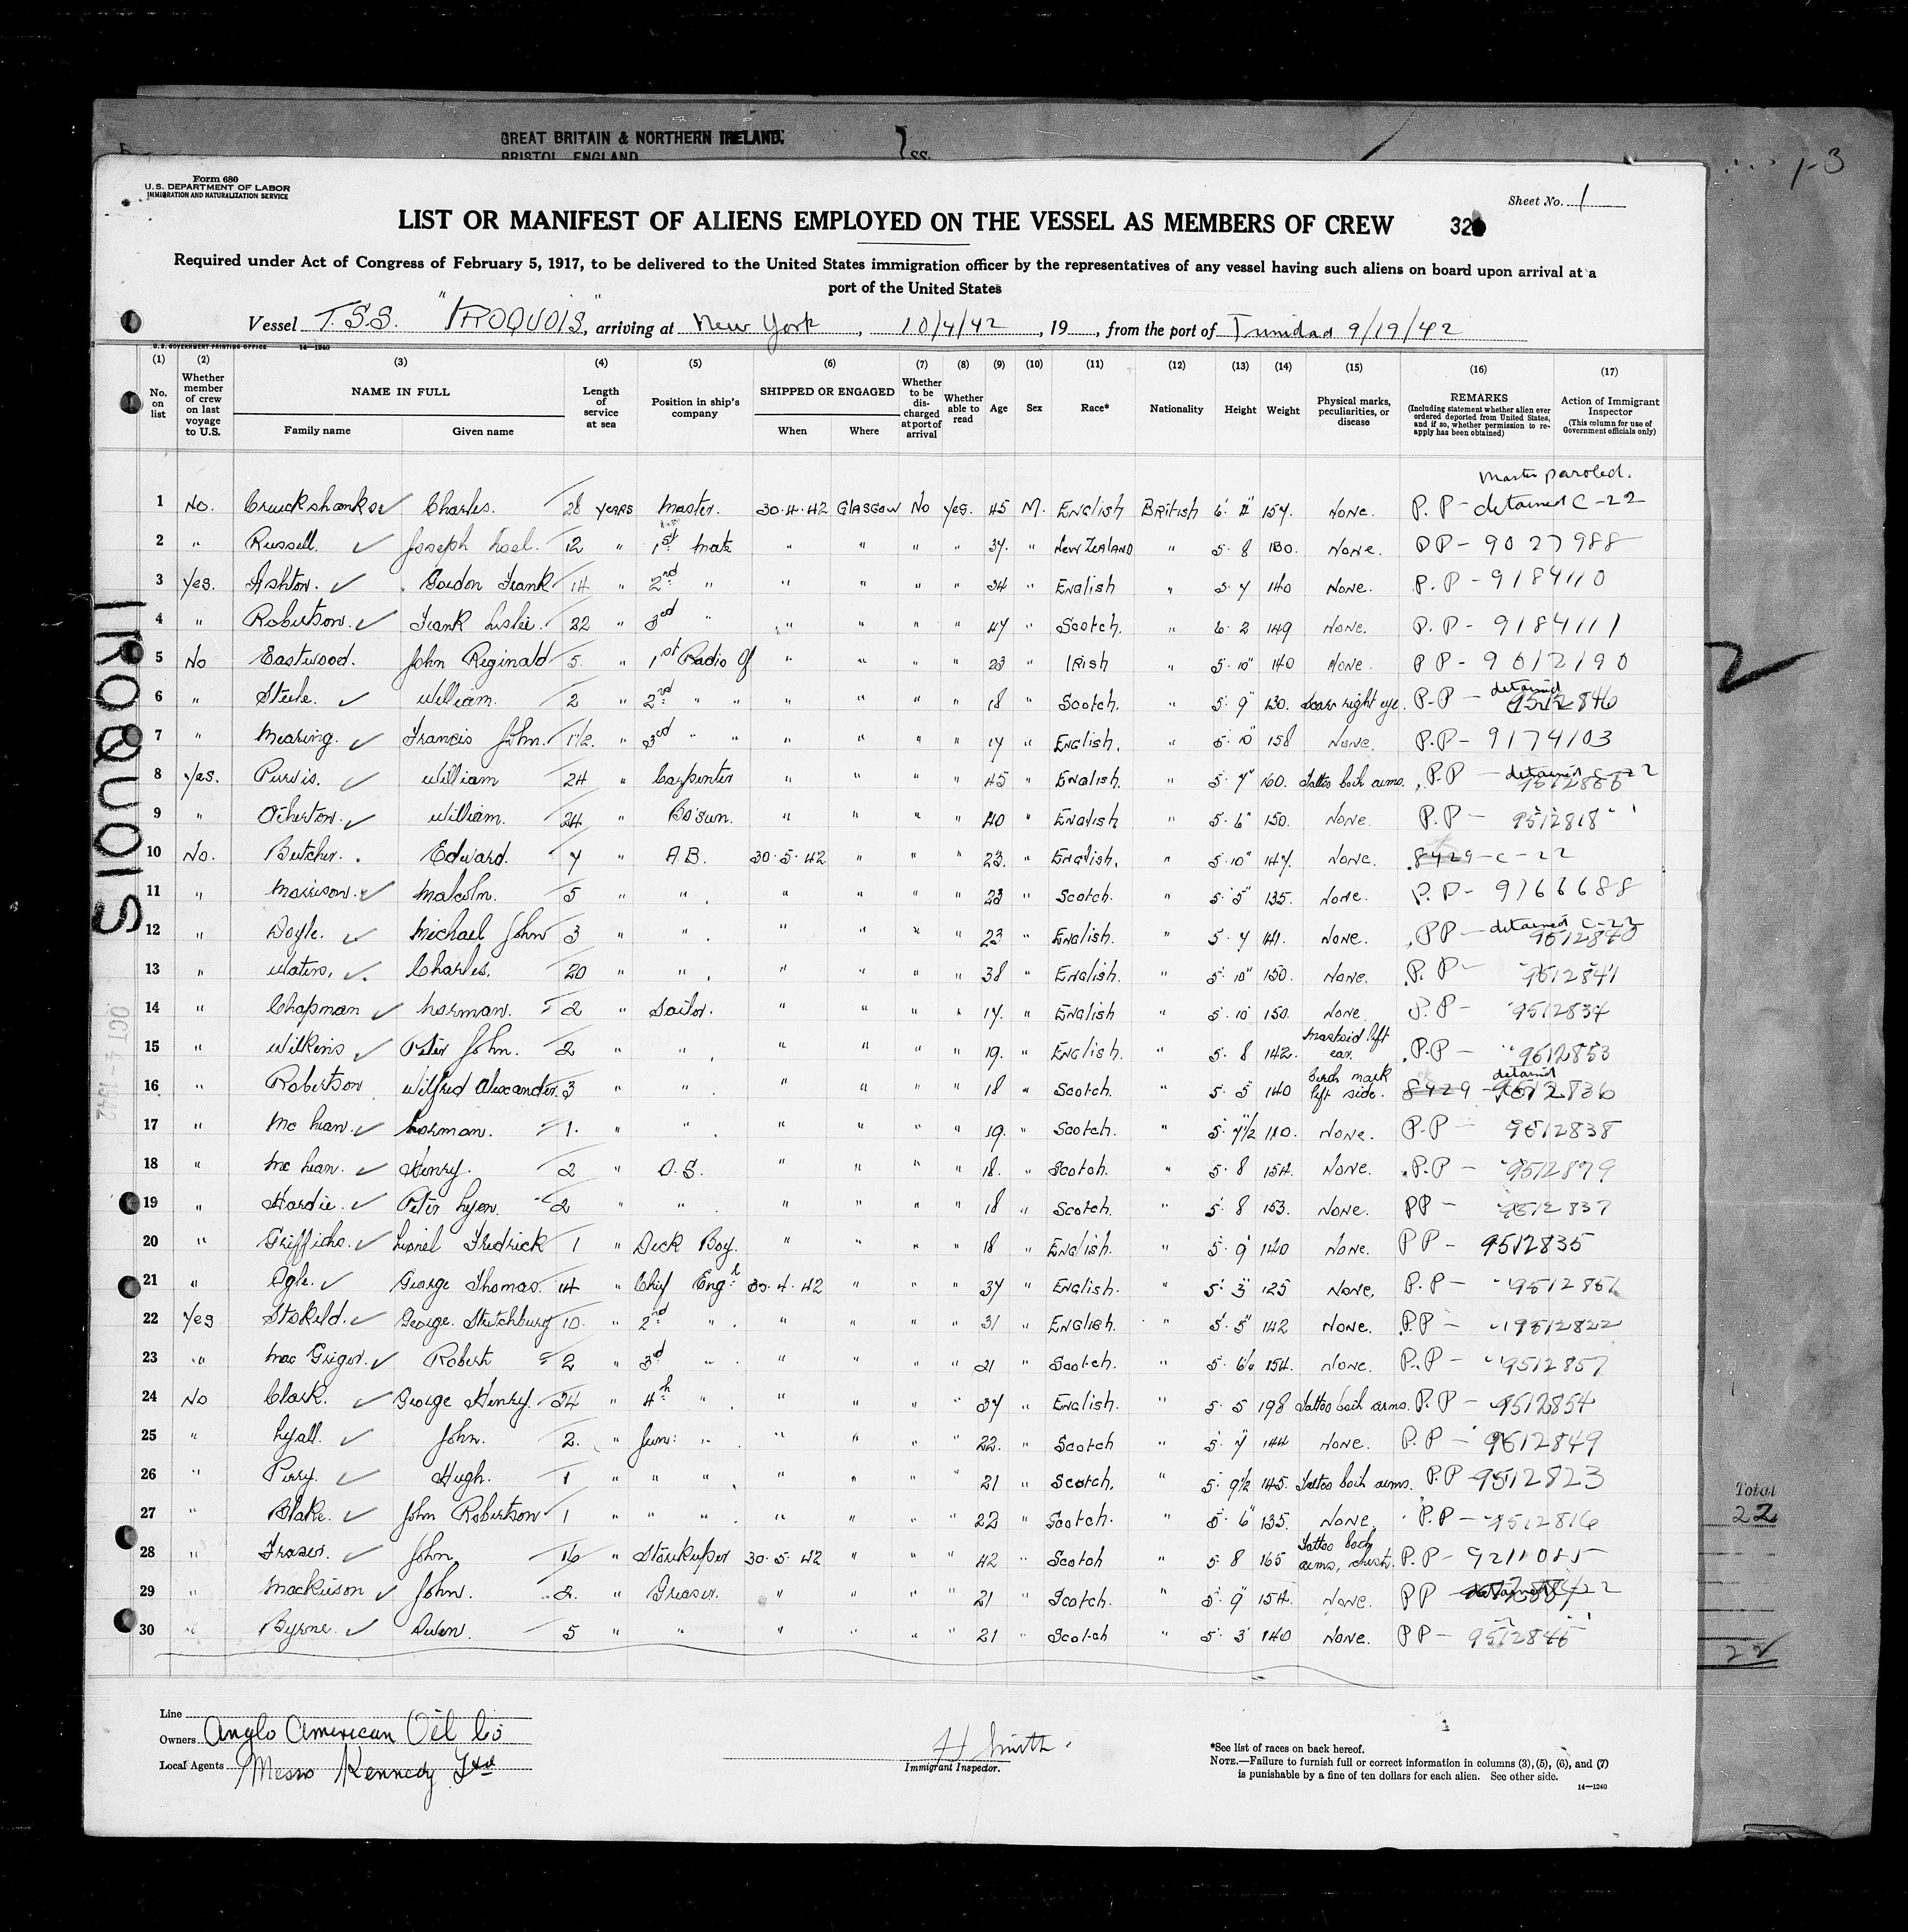 GREAT BRITAIN & NORTHERN IRELAND.
BRISTOL, ENGLAND
ss.
1-3
Form 680
U.S. DEPARTMENT OF LABOR
IMMIGRATION AND NATURALIZATION SERVICE
Sheet No. 1
LIST OR MANIFEST OF ALIENS EMPLOYED ON THE VESSEL AS MEMBERS OF CREW
Required under Act of Congress of February 5, 1917, to be delivered to the United States immigration officer by the representatives of any vessel having such aliens on board upon arrival at a
port of the United States
Vessel T.S.S. "IROQUOIS", arriving at New York, 10/4/42, 19 , from the port of Trinidad 9/19/42
U.S. GOVERNMENT PRINTING OFFICE 14-1240
(1) (2) (3) (4) (5) (6) (7) (8) (9) (10) (11) (12) (13) (14) (15) (16) (17)
No. on list
Whether member of crew on last voyage to U.S.
NAME IN FULL
Family name Given name
Length of service at sea
Position in ship's company
SHIPPED OR ENGAGED
When Where
Whether to be discharged at port of arrival
Whether able to read
Age Sex Race* Nationality Height Weight
Physical marks, peculiarities, or disease
REMARKS
(Including statement whether alien ever ordered deported from United States, and if so, whether permission to reapply has been obtained)
Action of Immigrant Inspector
(This column for use of Government officials only)
Master paroled.
1 No. Cruickshanks Charles. 28 YEARS Master. 30.4.42 GLASGOW No Yes. 45 M. English British 6' 154. None. P.P - detained C-22
2 " Russell. Joseph Noel. 12 " 1st Mate " " " " 37. " New Zealand " 5 8 180. None. PP - 9027988
3 Yes. Ashton. Gordon Frank 14 " 2nd " " " " " 34 " English " 5 7 140 None. P.P - 9184110
4 " Robertson. Frank Leslie. 22 " 3rd " " " " " 47 " Scotch. " 6 2 149 None. P.P - 9184111
5 No Eastwood. John Reginald 5. " 1st Radio Of " " " " 23 " Irish " 5.10" 140 None. PP - 9012190
6 " Steele. William. 2 " 2nd " " " " " " 18 " Scotch. " 5 9" 130. Scar right eye. P-P - detained 9512846
7 " Mearing. Francis John. 1½. " 3rd " " " " " " 17 " English. " 5.10" 158 None. P.P - 9174103
8 Yes. Purvis. William 24 " Carpenter " " " " 45 " English. " 5.7" 160. Tattoo both arms. P.P - detained C-22
9 " Otherton. William. 24 " Bosun. " " " " 40 " English " 5.6" 150. None. P.P - 9512818
10 No. Butcher. Edward. 7 " A.B. 30.5.42 " " " 23. " English. " 5.10" 147. None. 8429-C-22
11 " Morrison. Malcolm. 5 " " " " " " 23 " Scotch. " 5.5" 135. None. P.P - 9166688
12 " Doyle. Michael John 3 " " " " " " 23 " English. " 5.7 141. None. PP - detained C-22 9512840
13 " Waters, Charles. 20 " " " " " " 38 " English. " 5.10" 150. None. P.P - 9512841
14 " Chapman Norman. 2 " Sailor. " " " " 17. " English " 5.10 150. None P.P - 9512834
15 " Wilkens Peter John. 2 " " " " " " 19. " English. " 5.8 142. Mastoid left ear. P.P - 9512853
16 " Robertson Wilfred Alexander. 3 " " " " " " 18 " Scotch. " 5.5 140 Birth mark left side. 8429 - detained 9512836
17 " Mc Lean. Norman. 1. " " " " " " 19. " Scotch. " 5.7½ 110. None. P.P 9512838
18 " Mc Lean. Henry. 2 " O.S. " " " " 18. " Scotch. " 5.8 154. None. P.P - 9512879
19 " Hardie. Peter Lyon. 2 " " " " " " 18 " Scotch. " 5.8 153. None. PP - 9512837
20 " Griffiths. Lionel Fredrick 1 " Deck Boy. " " " " 18 " English. " 5.9 140 None. PP - 9512835
21 " Ogle. George Thomas. 14 " Chief Engr 30.4.42 " " " 37 " English. " 5.3 125 None. P.P -
22 Yes Stokeld. George. Stutchbury 10. " 2nd " " " " " 31 " English. " 5.5" 142 None. P.P - 9512822
23 " Mac Grigor. Robert 2 " 3d " " " " " 21 " Scotch. " 5. 154. None. P.P - 9512857
24 No Clark. George Henry. 24 " 4th " " " " " 37 " English. " 5.5 198 Tattoo both arms. P.P - 9512854
25 " Lyall. John. 2. " Jun: " " " " " 22. " Scotch " 5.7 144 None. P.P - 9512849
26 " Perry. Hugh. 1 " " " " " " " 21 " Scotch. " 5.9½ 145. Tattoo both arms. P.P 9512823
27 " Blake. John Robertson 1 " " " " " " " 22 " Scotch. " 5.6" 135. None. P.P - 9512816
28 " Fraser. John 16 " Storekeeper 30.5.42 " " " 42 " Scotch " 5.8 165 Tattoo body arms, chest. P.P - 9211085
29 " Mackieson John. 2. " Greaser. " " " " 21 " Scotch. " 5.9" 154. None. PP
30 " Byrne. Owen. 5 " " " " " " 21 " Scotch " 5.3 140 None. PP - 9512845
IROQUOIS
OCT 4 - 1942
2
Total
22
22
Line
Owners Anglo American Oil Co
Local Agents Messrs Kennedy
H Smith.
Immigrant Inspector.
*See list of races on back hereof.
NOTE.—Failure to furnish full or correct information in columns (3), (5), (6), and (7)
is punishable by a fine of ten dollars for each alien. See other side.
14-1240